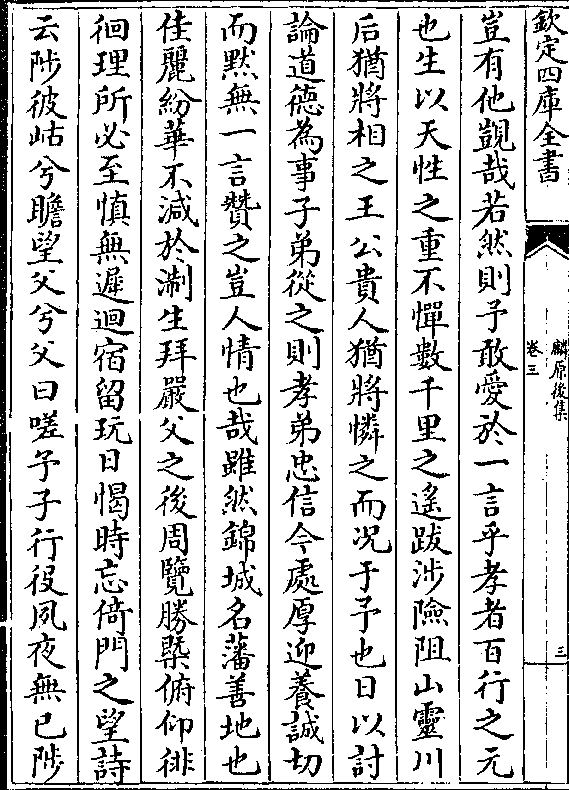 欽定四庫全書
麟原後集
卷三
三
豈有他覬哉若然則予敢愛於一言乎孝者百行之元
也生以天性之重不憚數千里之遙跋涉險阻山靈川
后猶將相之王公貴人猶將憐之而况于予也日以討
論道德為事子弟從之則孝弟忠信今處厚迎養誠切
而默無一言贊之豈人情也哉雖然錦城名藩善地也
佳麗紛華不減於淛生拜嚴父之後周覽勝槩俯仰徘
徊理所必至慎無遲迴宿留玩日愒時忘倚門之望詩
云陟彼岵兮瞻望父兮父曰嗟予子行役夙夜無已陟